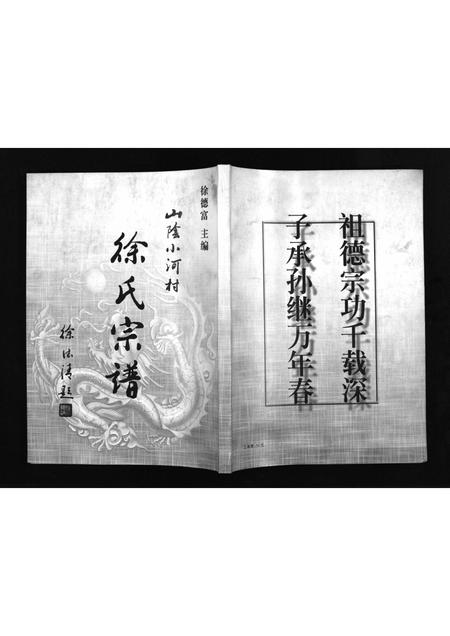 徐德富 主编
山阴小河村
徐氏宗谱
祖德宗功千载深
子承孙继万年春